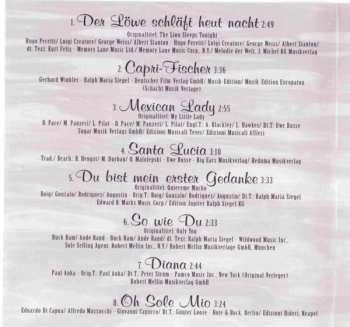 1. Der Löwe schläft heut nacht 2:49
Originaltitel: The Lion Sleeps Tonight
Hugo Peretti/ Luigi Creatore/ George Weiss/ Albert Stanton/ - Hugo Peretti/ Luigi Creatore/ George Weiss/ Albert Stanton/
dt. Text: Kurt Feltz - Memory Lane Music Ltd./ Memory Lane Music Corp. N.Y./ Melodie der Welt, J. Michel KG Musikverlag
2. Capri-Fischer 3:36
Gerhard Winkler - Ralph Maria Siegel - Deutscher Film Verlag GmbH/ Musik Edition/ Musik Edition Europaton
(Schacht Musik Verlage)
3. Mexican Lady 2:55
Originaltitel: My Little Lady
D. Pace/ M. Panzeri/ L. Pilat - D. Pace/ M. Panzeri/ L. Pilat/ Engl.T: A. Blackley/ L. Hawkes/ Dt.T: Uwe Busse
Sugar Musik Verlags GmbH/ Edizioni Musicali Televi/ Edizioni Musicali Alfieri
4. Santa Lucia 3:10
Trad./ Bearb. H. Hengst/ M. Durban/ O. Malolepski - Uwe Busse - Big Barz Musikverlag/ Reduma Musikverlag
5. Du bist mein erster Gedanke 3:33
Originaltitel: Quiereme Mucho
Roig/ Gonzalo/ Rodriguez/ Augustin - Orig.T: Roig/ Gonzalo/ Rodriguez/ Augustin/ Dt.T: Ralph Maria Siegel
Edward B. Marks Music Corp./ Edition Jupiter Ralph Siegel KG
6. So wie Du 2:33
Originaltitel: Only You
Buck Ram/ Ande Rand - Buck Ram/ Ande Rand/ dt. Text: Ralph Maria Siegel - Wildwood Music Inc.
Sole Selling Agent, Robert Mellin Inc., N.Y./ Robert Mellin Musikverlage GmbH, München
7. Diana 2:44
Paul Anka - Orig.T: Paul Anka/ Dt.T: Peter Ström - Pamco Music Inc., New York (Original Verleger)
Robert Mellin Musikverlag GmbH
8. Oh Sole Mio 3:24
Eduardo Di Capua/ Alfredo Mazzucchi - Giovanni Capurro/ Dt.T: Günter Loose - Bote & Bock, Berlin/ Edizioni Bideri, Neapel